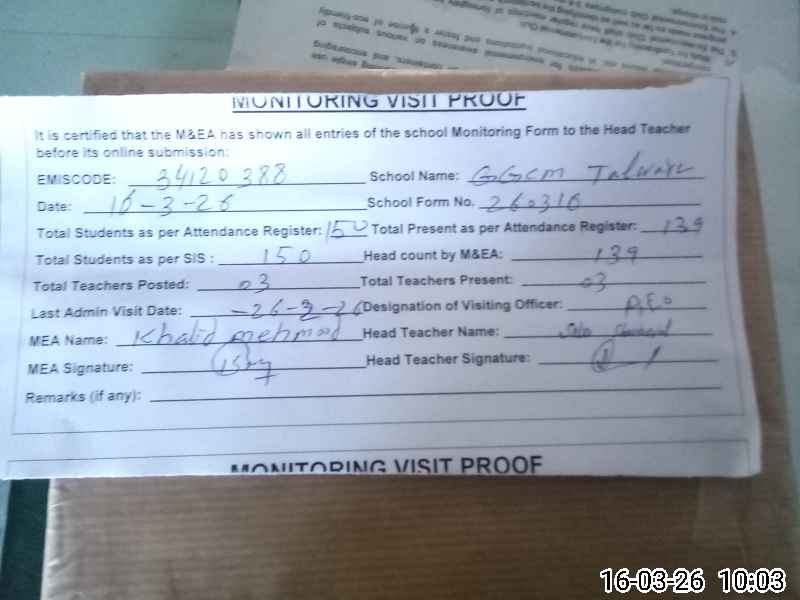 MONITORING VISIT PROOF
It is certified that the M&EA has shown all entries of the school Monitoring Form to the Head Teacher
before its online submission:
EMISCODE: 34120388 School Name: GGCM
Date: 16-3-26 School Form No. 260316
Total Students as per Attendance Register: 150 Total Present as per Attendance Register: 139
Total Students as per SIS : 150 Head count by M&EA: 139
Total Teachers Posted: 03 Total Teachers Present: 03
Last Admin Visit Date: -26-2-26 Designation of Visiting Officer: AEO
MEA Name: Khalid mehmood Head Teacher Name:
MEA Signature: Head Teacher Signature:
Remarks (if any):
MONITORING VISIT PROOF
16-03-26 10:03